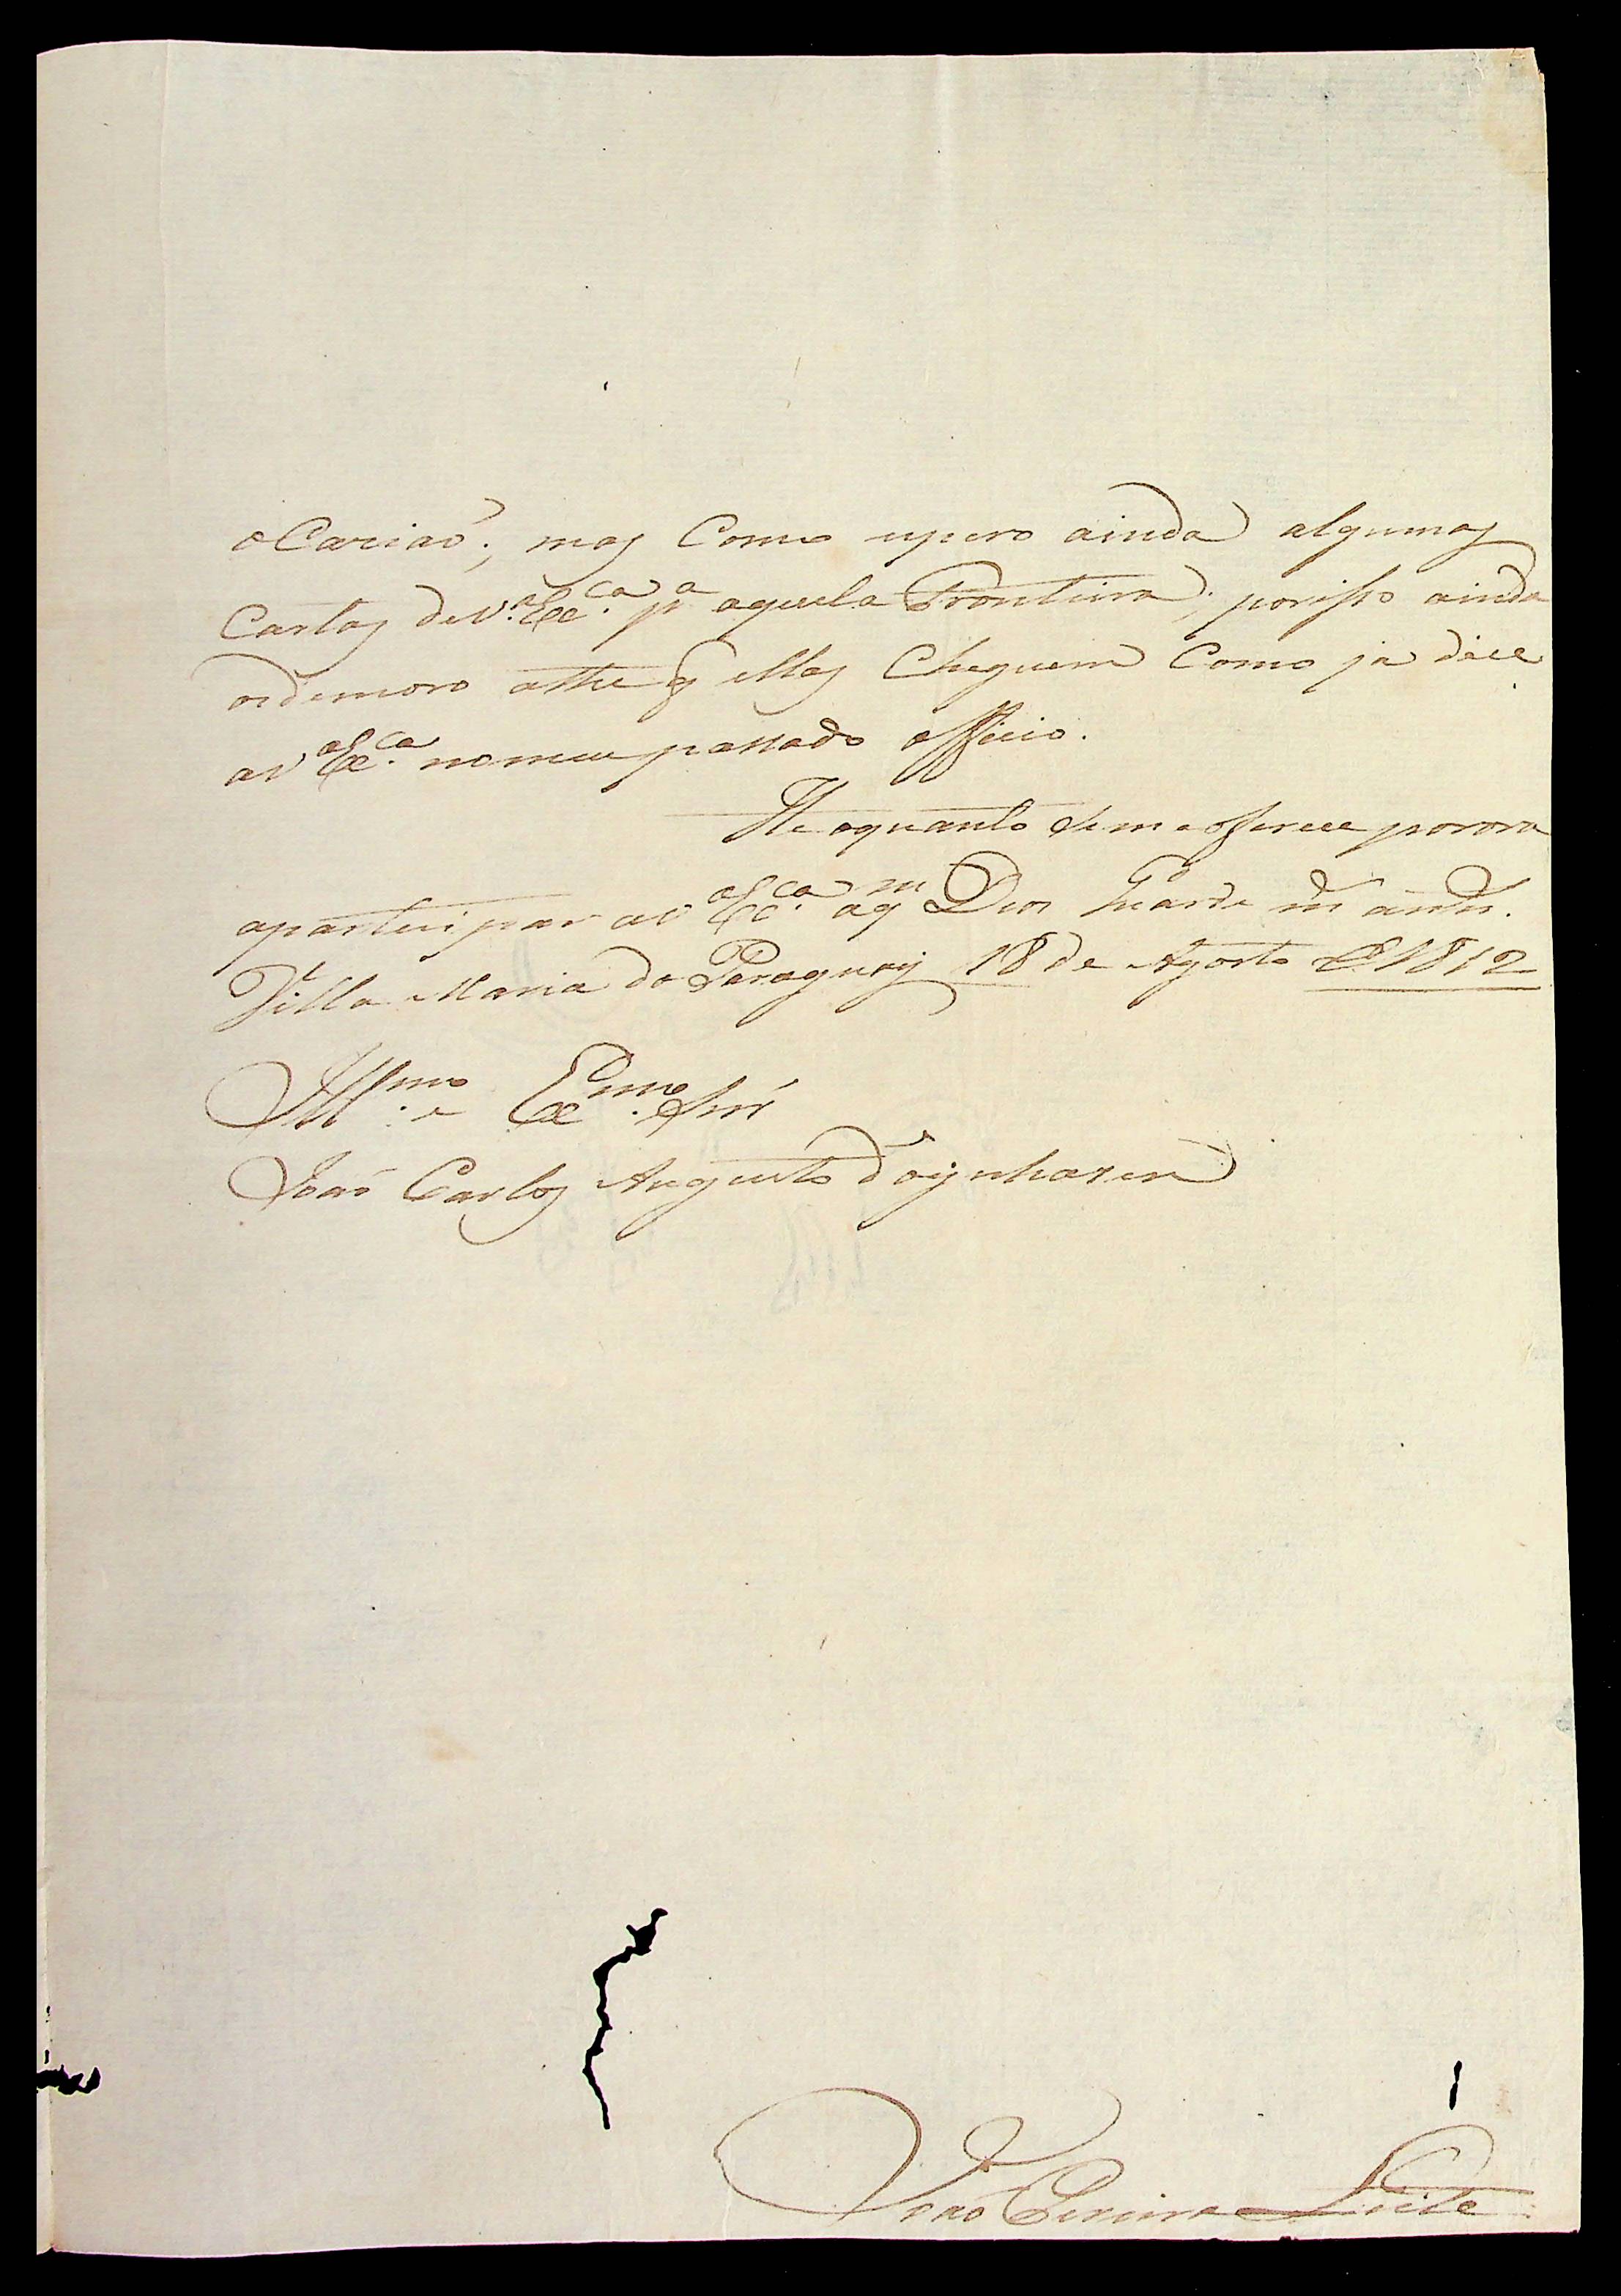 ocaziaõ; mas Como espero ainda algumas
Cartas de V. Exca. pa aquela Fronteira; porisso ainda
os demoro athe q ellas Cheguem Como ja dice
a V Exca. no meu passado officio.
He oquanto se me offerece porora
aparteci par a V Exca. aqm Deos Guarde ms ann.
Villa Maria do Paraguay 18 de Agosto de 1812
Illmo. e Exmo. Snr
Joaõ Carlos Augusto d'Oynhazen
Joaõ Pereira Leite